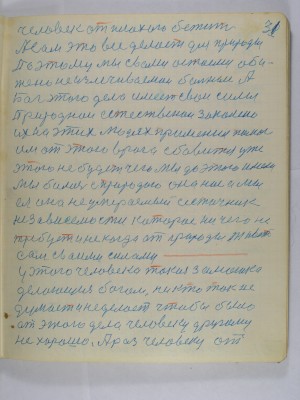 31
человек от плохого бежит
А сам это все делает для природы
Поэтому мы с вами остаемся оби-
жено неизлечиваемой больным А
Бог этого дела имеет свои силы
Природной естественной законно
их на этих людях применил таким
им от этого врага сбавится уже
этого не будет чего мы до этого имели
Мы были с природою она нас имел
ее она не умираемый источник
независемости которое ничего не
требует и никогда от природы живет
сам своими силами
у этого человека такая замашка
делающия богом, никто так не
думает и не делает чтобы было
от этого дела человеку другому
не хорошо. А раз человеку от